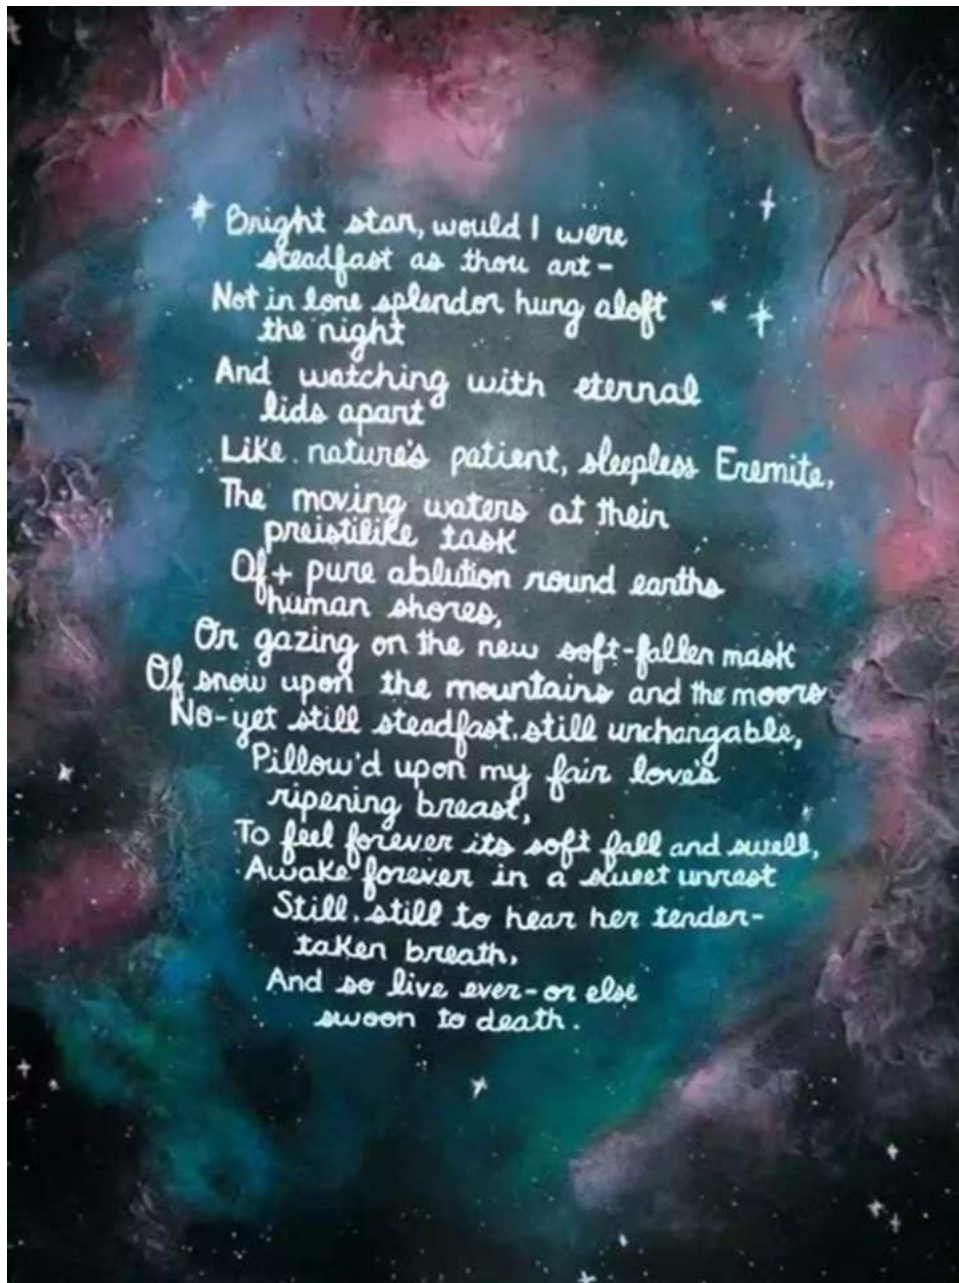 Bright star, would I were
steadfast as thou art-
Not in lone splendor hung aloft
the night
And watching with eternal
lids apart
Like nature's patient, sleepless Eremite,
The moving waters at their
preistilike task
Of + pure ablution round earths
human shores,
Or gazing on the new soft-fallen mask
Of snow upon the mountains and the moors
No-yet still steadfast. still unchangable,
Pillow'd upon my fair love's
ripening breast,
To feel forever its soft fall and swell,
Awake forever in a sweet unrest
Still. still to hear her tender-
taken breath,
And so live ever-or else
swoon to death.